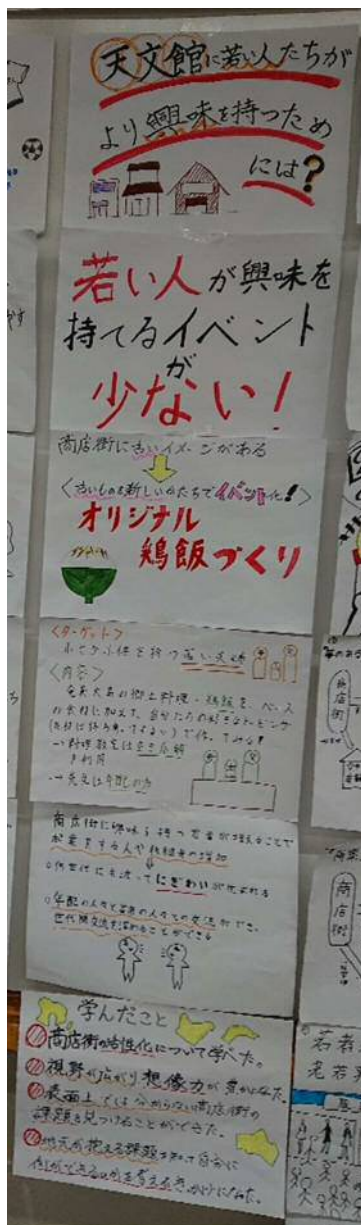 天文館に若い人たちが
より興味を持つため
には?
若い人が興味を
持てるイベント
が
少ない!
商店街に古いイメージがある
<古いものを新しいかたちでイベント化!>
オリジナル
鶏飯づくり
<ターゲット>
小さな子供を持つ若い夫婦
<内容>
奄美大島の郷土料理・鶏飯を、ベース
の食材に加えて、自分たちの好きなトッピング
→料理教室は空き店舗
を利用
商店街に興味を持つ若者が増えることで
起業をする人や
の増加
○何世代にも渡ってにぎわいが生まれる
○年配の人々と若者の人々との交流ができ、
世代間交流を深めることができる
学んだこと
商店街の活性化について学べた。
視野が広がり想像力が豊かになった。
表面上では分からない商店街の
課題を見つけることができた。
地元が抱える課題を知って自分に
何ができるのかを考えるきっかけになった。
商店街
商店街